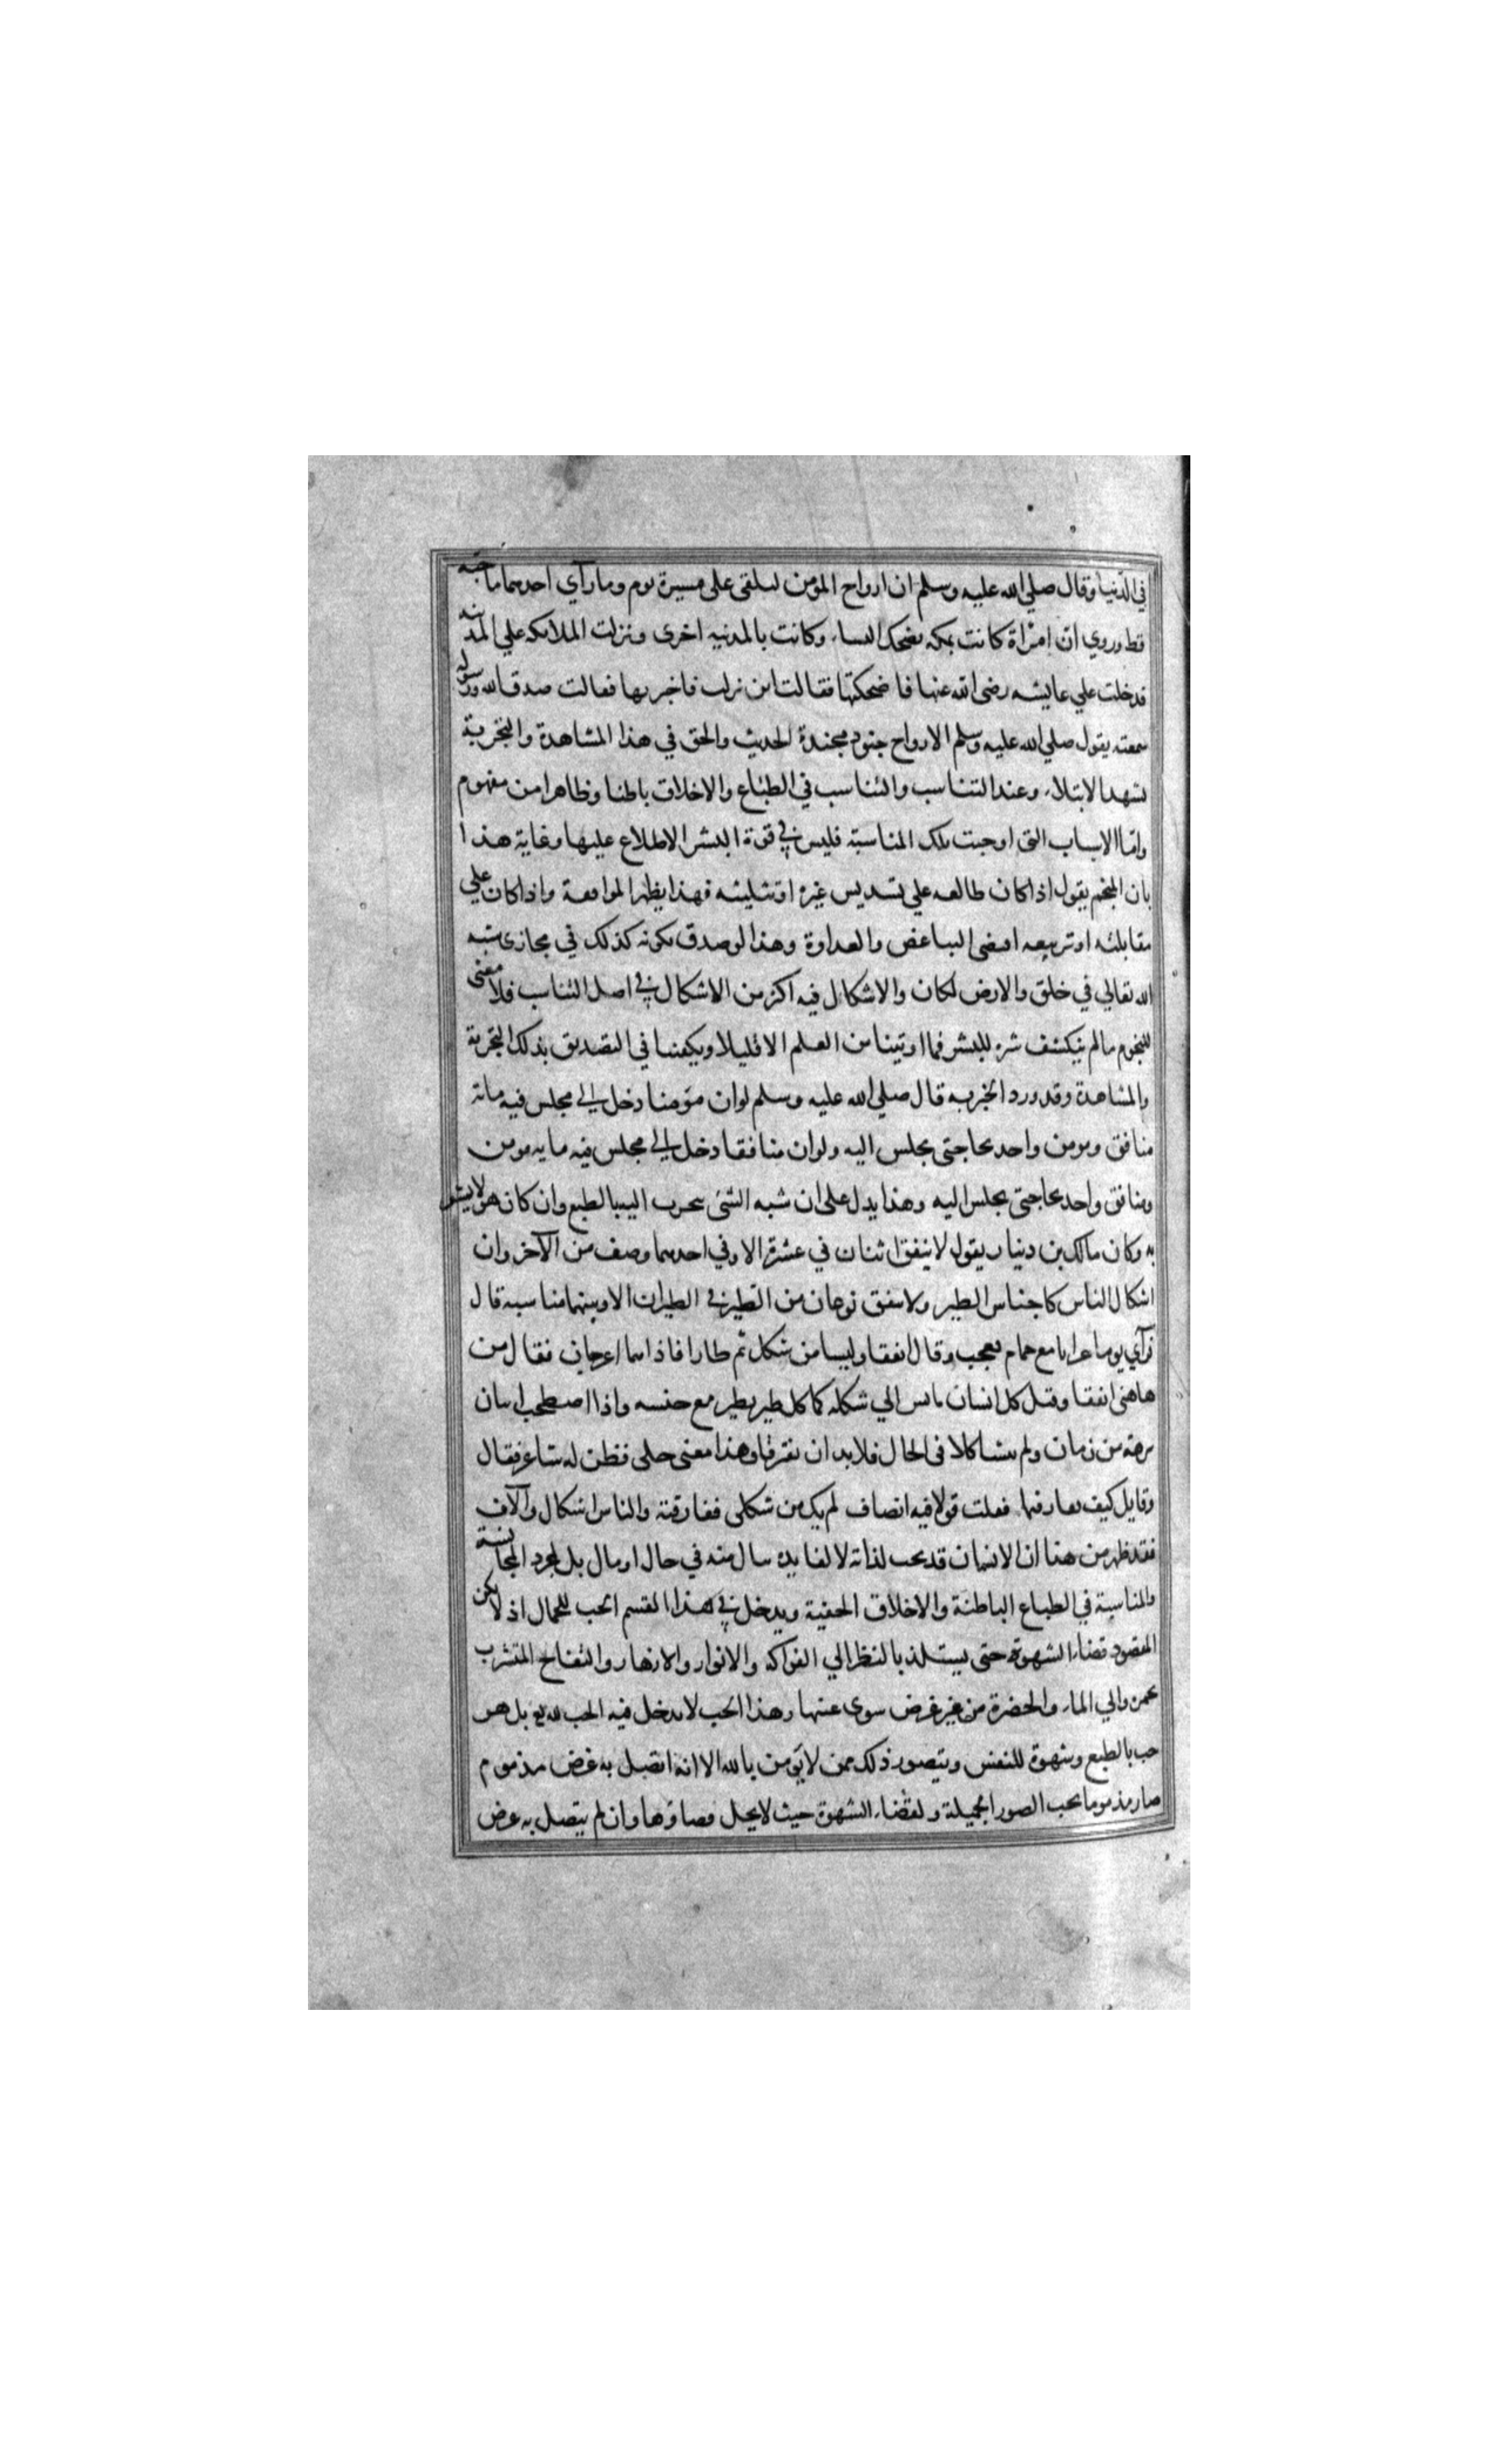 في الدّنيا وقال صلي الله عليه وسلم ان ارواح المؤمن لىلتقى على مسيرة يوم وما رآي احدهما صاحبه
قط وروي انّ امرْاة كانت بمكه تضحك النسا، وكانت بالمدنيه اخرى ونزلت الملاىكه علي المدىنه
فدخلت علي عايشه رضى الله عنها فاضحكتها فقالت اىن نزلت فاخبرىها فقالت صدق الله ورسوله
سمعته يقول صلي الله عليه وسلم الارواح جنود مجندة الحديث والحق في هذا المشاهدة والتجربة
تشهد الابتلاء وعند التناسب والتناسب في الطبْاع والاخلاق باطنا وظاهرا من مفهوم
وامّا الاسباب التى اوجبت تلك المناسبة فليس في قوة البشر الاطلاع عليها وغاية هذا
بان المنجم يقول اذا كان طالعه علي تسديس غيره او تثليثه فهذا يظهر الموافعة واذا كان علي
مقابلته او تربيعه افضى التباغض والعداوة وهذا لو صدق بكونه كذلك في مجارى سنه
الله تعالي في خلق والارض لكان والاشكال فيه اكثر من الاشكال في اصل التناسب فلا معنى
للنجوم ما لم ينكشف سره للبشر فما اوتينا من العلم الا قليلا ويكفينا في التصديق بذلك التجربة
والمشاهدة وقد ورد الخبر به قال صلي الله عليه وسلم لو ان مؤمنا دخل الي مجلس فيه مائة
منافق ومومن واحد لجا حتى يجلس اليه ولو ان منافقا دخل الي مجلس فيه مايه مومن
ومنافق واحد لجا حتى يجلس اليه وهذا يدل على ان شبه الشئ منجذب اليه بالطبع وان كان هو لا يشعر
به وكان مالك بن دينار يقول لا يتفق اثنان في عشرة الا وفي احدهما وصف من الآخر وان
اشكال الناس كاجناس الطير ولا يتفق نوعان من الطير في الطيران الا وبينهما مناسبة قال
فرآي يوما غرابا مع حمام فعجب وقال اتفقا وليسا من شكل ثم طارا فاذا هما اعرجان فقال من
هاهنى اتفقا وقىل كل انسان يانس الي شكله كما كل طير يطير مع جنسه واذا اصطحب اثنان
برهة من زمان ولم يتشاكلا في الحال فلا بد ان يفترقا وهذا معنى جلى فطن له شاعر فقال
وقايل كيف تفارقتما فقلت قولا فيه انصاف لم يك من شكلى ففارقته والناس اشكال وآلاف
فقد ظهر من هنا ان الانسان قد يحب لذاته لا لفايده سال منه في حال او مال بل لمجرد المجانسة
والمناسبة في الطباع الباطنة والاخلاق الخفية ويدخل في هذا القسم الحب للجمال اذ لا يكن
المقصود قضاء الشهوة حتى يستلذ بالنظر الي الفواكه والانوار والازهار والتفاح المتشرب
بحمرة والي الماء والخضرة من غير غرض سوى عينها وهذا الحب لا يدخل فيه الحب لله تع بل هو
حب بالطبع وشهوة للنفس ويتصور ذلك ممن لا يؤمن بالله الا انه اتصل به غرض مذموم
صار مذموما كحب الصور الجميلة ولقضاء الشهوة حيث لا يحل قضاؤها وان لم يتصل به غرض